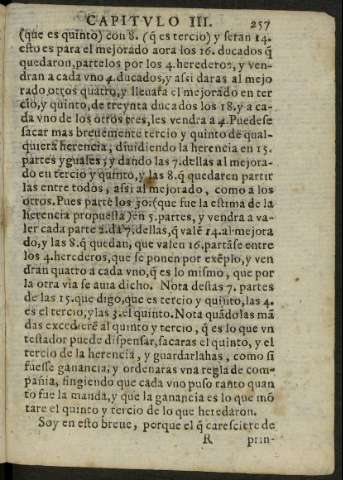 CAPITVLO III. 257
(que es quinto) con 8. (q̃ es tercio) y seran 14.
esto es para el mejorado aora los 16. ducados q̃
quedaron, partelos por los 4. herederos, y ven-
dran a cada vno 4. ducados, y assi daras al mejo
rado otros quatro, y lleuara el mejorado en ter
cio, y quinto, de treynta ducados los 18. y a ca-
da vno de los otros tres, les vendra a 4. Puedese
sacar mas breuemente tercio y quinto de qual-
quiera herencia, diuidiendo la herencia en 15.
partes yguales; y dando las 7. dellas al mejora-
do en tercio y quinto, y las 8. q̃ quedaren partir
las entre todos, assi al mejorado, como a los
otros. Pues parte los 30. (que fue la estima de la
herencia propuesta) en 15. partes, y vendra a va-
ler cada parte 2. da 7. dellas, q̃ valẽ 14. al mejora
do, y las 8. q̃ quedan, que valen 16. partãse entre
los 4. herederos, que se ponen por exẽplo, y ven
dran quatro a cada vno, q̃ es lo mismo, que por
la otra via se auia dicho. Nota destas 7. partes
de las 15. que digo, que es tercio y quinto, las 4.
es el tercio, y las 3. el quinto. Nota quãdo las mã
das excedierẽ al quinto y tercio, q̃ es lo que vn
testador puede dispensar, sacaras el quinto, y el
tercio de la herencia, y guardarlahas, como si
fuesse ganancia, y ordenaras vna regla de com-
pañia, fingiendo que cada vno puso tanto quan
to fue la manda, y que la ganancia es lo que mõ
tare el quinto y tercio de lo que heredaron.
Soy en esto breue, porque el q̃ caresciere de
R prin-